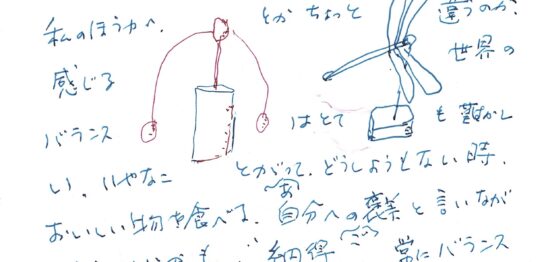 私のほうが、 とか ちょっと 違うのか、
感じる 世界の
バランス はとても難かし
い、いやなこ とがあって、どうしようもない時、
おいしい物を食べる、自分への褒美と言いなが
納得 常にバランス